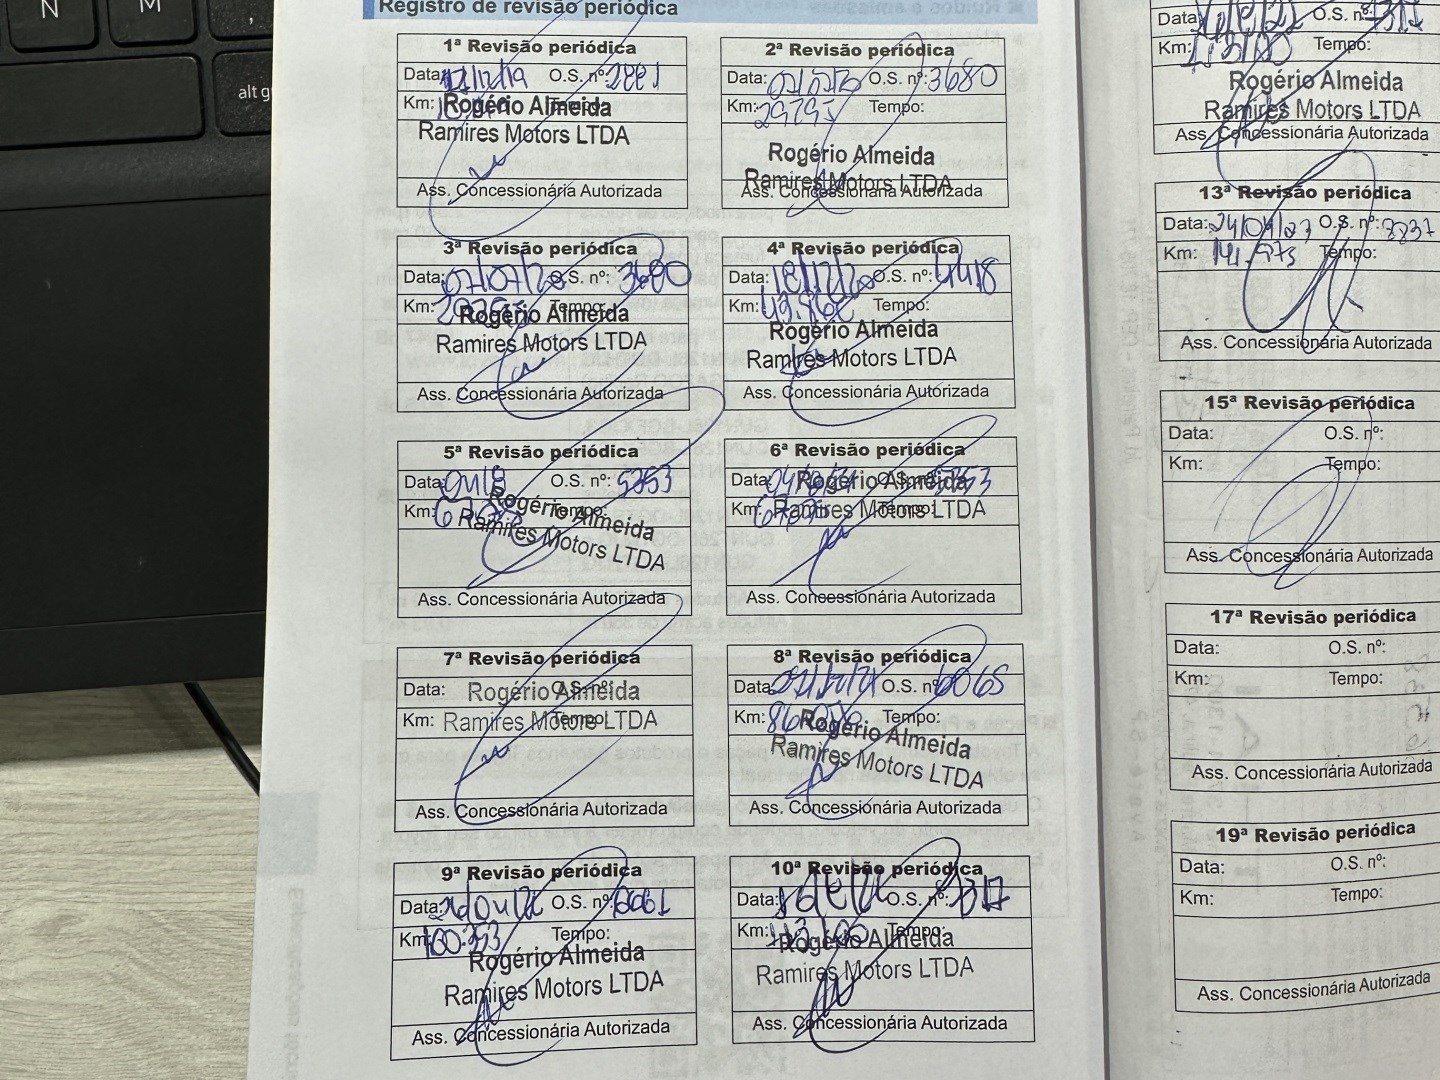 N
M
,
alt g
Registro de revisão periódica
1ª Revisão periódica
Data: 17/12/19 O.S. nº: 2881
Km: Tempo:
Rogério Almeida
Ramires Motors LTDA
Ass. Concessionária Autorizada
2ª Revisão periódica
Data: 07/07/20 O.S. nº: 3680
Km: 29795 Tempo:
Rogério Almeida
Ramires Motors LTDA
Ass. Concessionária Autorizada
3ª Revisão periódica
Data: 07/07/20 O.S. nº: 3680
Km: 29795 Tempo:
Rogério Almeida
Ramires Motors LTDA
Ass. Concessionária Autorizada
4ª Revisão periódica
Data: 18/12/20 O.S. nº: 4418
Km: Tempo:
Rogério Almeida
Ramires Motors LTDA
Ass. Concessionária Autorizada
5ª Revisão periódica
Data: O.S. nº: 5353
Km: Tempo:
Rogério Almeida
Ramires Motors LTDA
Ass. Concessionária Autorizada
6ª Revisão periódica
Data: O.S. nº: 5353
Km: Tempo:
Rogério Almeida
Ramires Motors LTDA
Ass. Concessionária Autorizada
7ª Revisão periódica
Data: O.S. nº:
Km: Tempo:
Rogério Almeida
Ramires Motors LTDA
Ass. Concessionária Autorizada
8ª Revisão periódica
Data: O.S. nº: 6065
Km: Tempo:
Rogério Almeida
Ramires Motors LTDA
Ass. Concessionária Autorizada
9ª Revisão periódica
Data: O.S. nº:
Km: 100.353 Tempo:
Rogério Almeida
Ramires Motors LTDA
Ass. Concessionária Autorizada
10ª Revisão periódica
Data: O.S. nº:
Km: Tempo:
Rogério Almeida
Ramires Motors LTDA
Ass. Concessionária Autorizada
Data: O.S. nº:
Km: Tempo:
Rogério Almeida
Ramires Motors LTDA
Ass. Concessionária Autorizada
13ª Revisão periódica
Data: 24/04/23 O.S. nº: 8837
Km: 141.973 Tempo:
Ass. Concessionária Autorizada
15ª Revisão periódica
Data: O.S. nº:
Km: Tempo:
Ass. Concessionária Autorizada
17ª Revisão periódica
Data: O.S. nº:
Km: Tempo:
Ass. Concessionária Autorizada
19ª Revisão periódica
Data: O.S. nº:
Km: Tempo:
Ass. Concessionária Autorizada